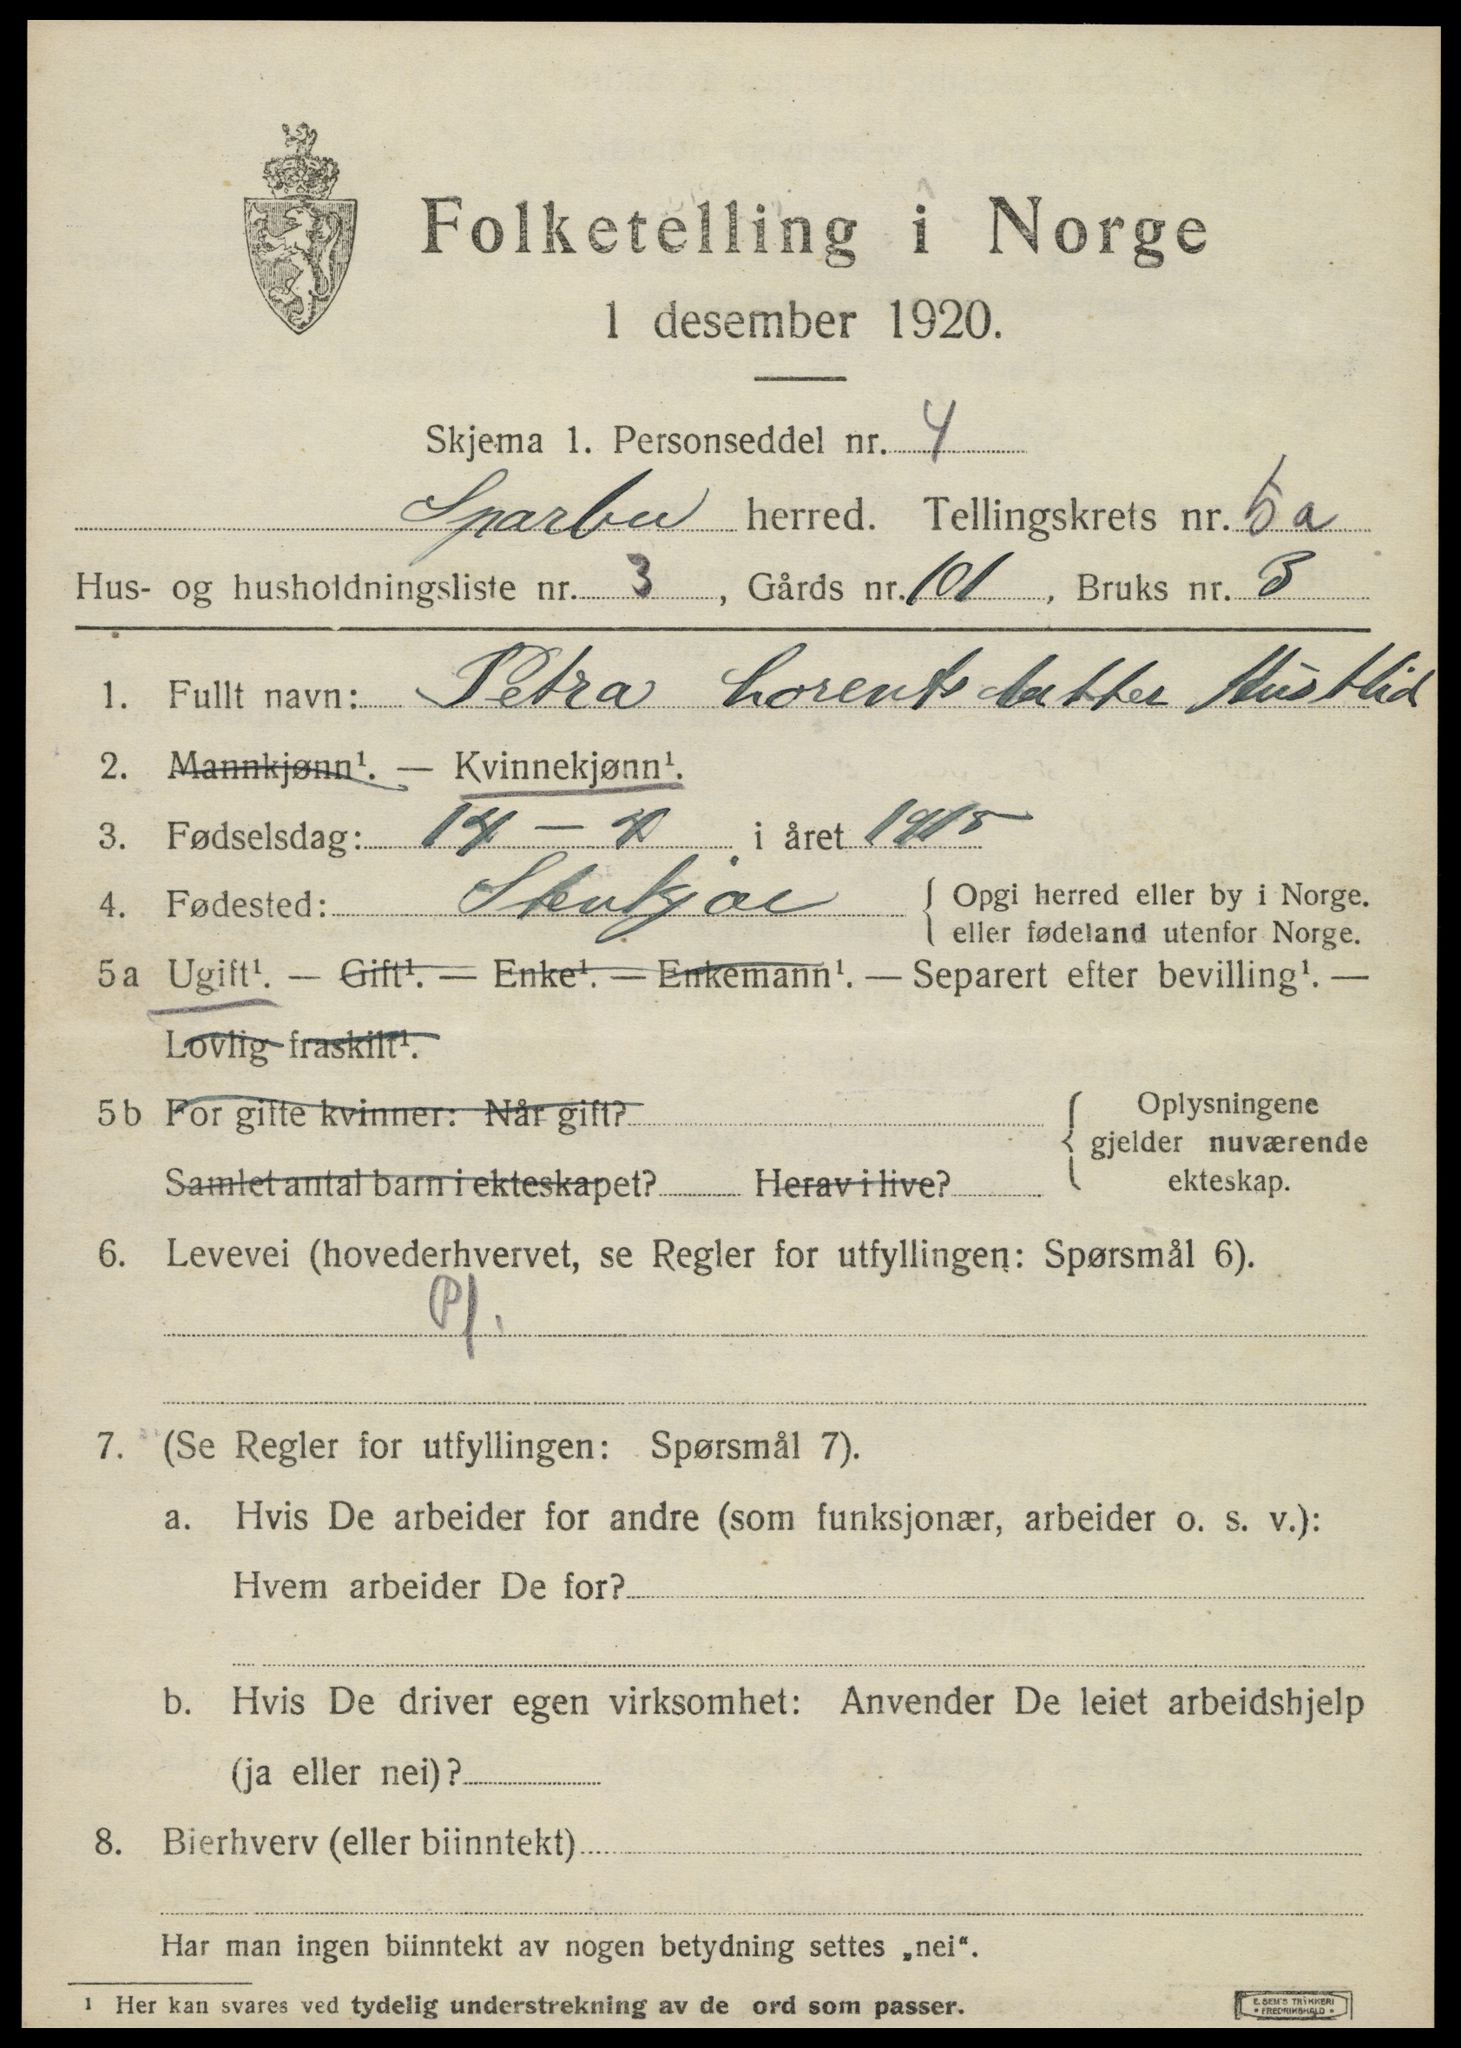 Folketelling i Norge
1 desember 1920.
Skjema 1. Personseddel nr. 4
Sparbu herred. Tellingskrets nr. 5a
Hus- og husholdningsliste nr. 3, Gårds nr. 101, Bruks nr. 3
1. Fullt navn: Petra Lorentsdatter
2. Mannkjønn¹. — Kvinnekjønn¹.
3. Fødselsdag: 14 – 4 i året 1915
4. Fødested: Stenkjær { Opgi herred eller by i Norge.
eller fødeland utenfor Norge.
5a Ugift¹. — Gift¹. — Enke¹. — Enkemann¹. — Separert efter bevilling¹. —
Lovlig fraskilt¹.
5b For gifte kvinner: Når gift? { Oplysningene
gjelder nuværende
ekteskap.
Samlet antal barn i ekteskapet? Herav i live?
6. Levevei (hovederhvervet, se Regler for utfyllingen: Spørsmål 6).
Pf.
7. (Se Regler for utfyllingen: Spørsmål 7).
a. Hvis De arbeider for andre (som funksjonær, arbeider o. s. v.):
Hvem arbeider De for?
b. Hvis De driver egen virksomhet: Anvender De leiet arbeidshjelp
(ja eller nei)?
8. Bierhverv (eller biinntekt)
Har man ingen biinntekt av nogen betydning settes „nei“.
¹ Her kan svares ved tydelig understrekning av de ord som passer.
E. SEM'S TRYKKERI
• FREDRIKSHALD •